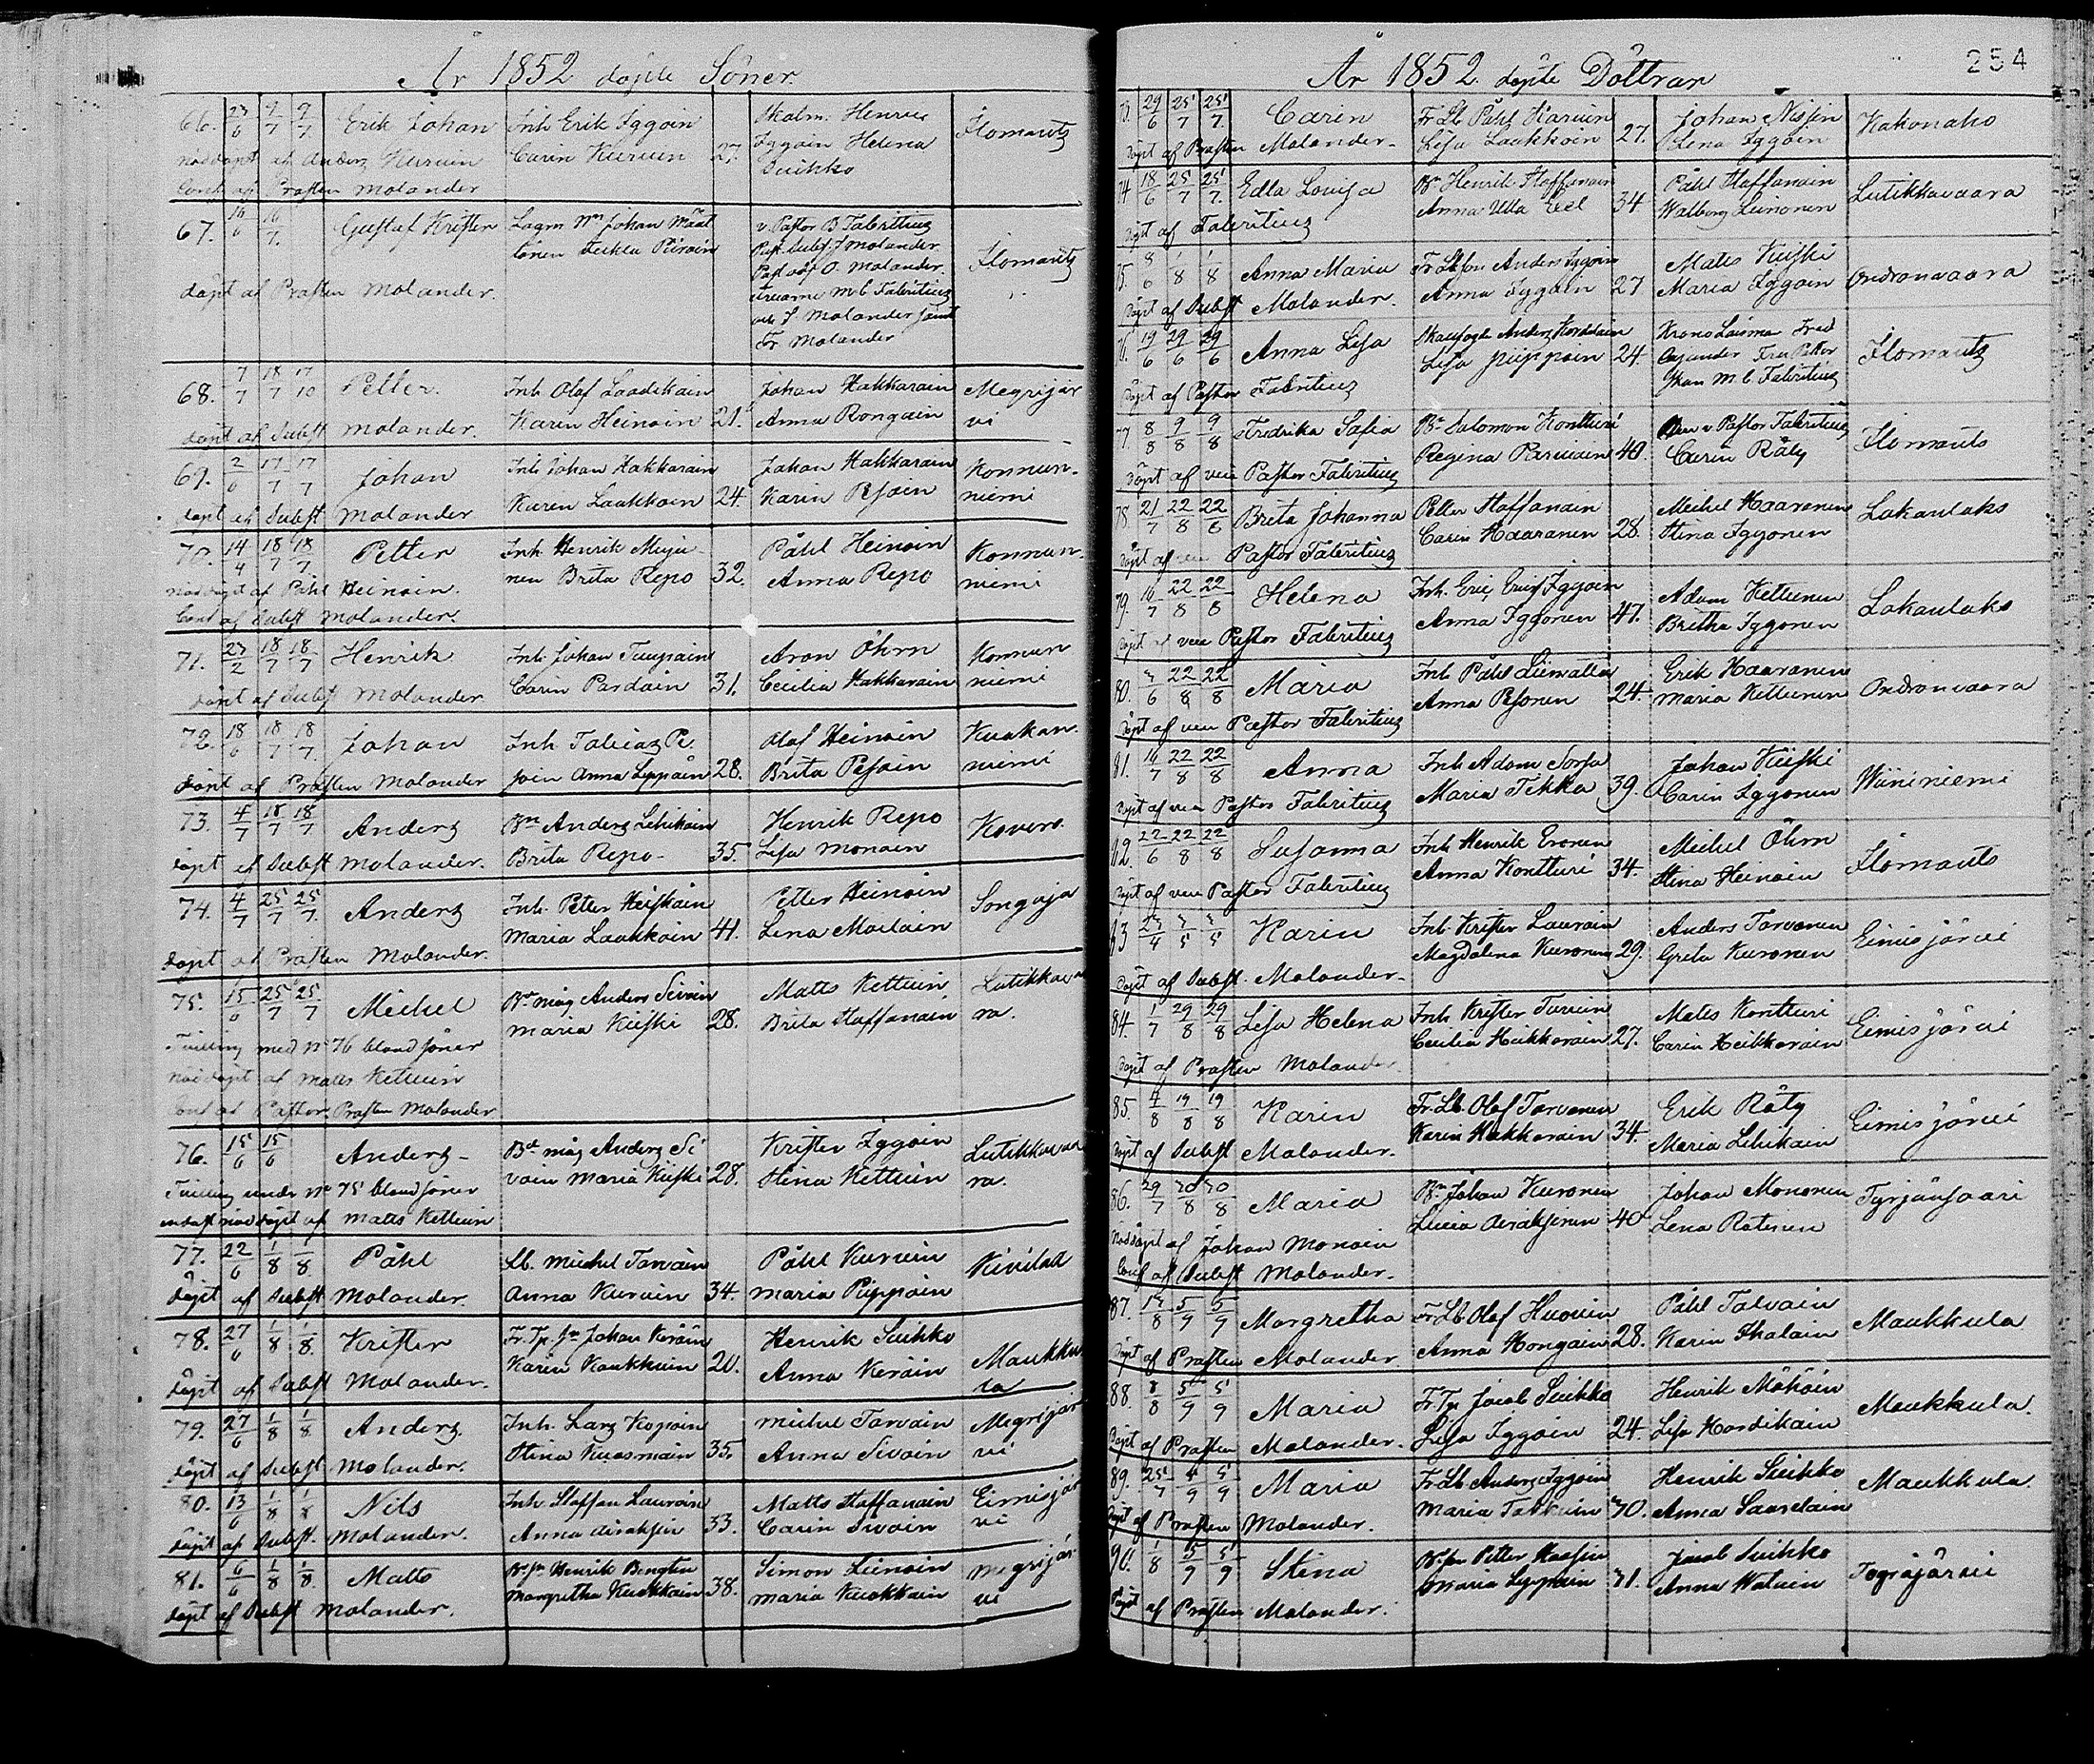 År 1852 döpte Söner
66. 23/6 9/7 9/7 Erik Johan Inh Erik Iggoin Skolm. Henric Ilomants
Carin Kuruin 27. Iggoin Helena
nöddöpt af Anderz Kuruin Suikko
Conf af Prosten Molander
67. 16/6 16/7 Gustaf Krister Lagm Johan v. Pastor B Fabritius Ilomants
Tekla Piiroin J Molander
O. Molander
döpt af Prosten Molander. M C Fabritius
och J. Molander samt
Fr Molander
68. 7/7 18/7 17/10 Petter. Inh Olof Laadikain Johan Hakkarain Megrijär
Karin Heinoin 21. Anna Rongain vi
döpt af Subst Molander.
69. 2/6 17/7 17/7 Johan Inh Johan Hakkarain Johan Hakkarain Konnun-
Karin Laukkoin 24. Karin Pesoin niemi
döpt af Subst Molander
70. 14/4 18/7 18/7 Petter Inh Henrik Muju- Påhl Heinoin Konnun-
nen Brita Repo 32. Anna Repo niemi
nöddöpt af Påhl Heinoin.
Conf af Subst Molander.
71. 27/2 18/7 18/7 Henrik Inh Johan Aron Öhrn Konnun
Carin Pardain 31. Cecilia Hakkarain niemi
döpt af Subst Molander
72. 18/6 18/7 18/7 Johan Inh Tobiaz Pe- Olof Heinoin Kuokan-
soin Anna Leppäin 28. Brita Pesoin niemi
döpt af Prosten Molander
73. 4/7 18/7 18/7 Anderz Bn Anderz Lehikain Henrik Repo Kovero.
Brita Repo- 35. Lisa Monoin
döpt af Subst Molander.
74. 4/7 25/7 25/7 Anderz Inh. Petter Heiskain Petter Heinoin Songaja
Maria Laukkoin 41. Lena Moilain
döpt af Prosten Molander.
75. 15/6 25/7 25/7 Michel Bd måg Anders Sivoin Matts Kettuin Lutikkava
Maria Kiiski 28. Brita Staffanain ra.
Tvilling med No 76 bland söner
nöddöpt af Matts Kettuin
Conf af Pastor. Prosten Molander
76. 15/6 15/6 Anderz- Bd måg Anderz Si Krister Iggoin Lutikkavaa
voin Maria Kiiski 28. Stina Kettuin ra.
Tvilling under No 75 bland söner
endast nöddöpt af Matts Kettuin
77. 22/6 1/8 1/8 Påhl Lb. Michel Tarvain Påhl Kuruin Kivilax
Anna Kuruin 34. Maria Piippoin
döpt af Subst Molander.
78. 27/6 1/8 1/8 Krister Fr. Tp. sn Johan Keräin Henrik Suikko Maukku
Karin Kaukkuin 20. Anna Keräin la
döpt af Subst Molander.
79. 27/6 1/8 1/8 Anderz. Inh. Larz Kopoin Michel Tarvain Megrijär
Stina Kuosmain 35. Anna Sivoin vi
döpt af Subst Molander.
80. 13/6 1/8 1/8 Nils Inh Staffan Lauroin Matts Staffanain Eimisjär
Anna Airaksin 33. Carin Sivoin vi
döpt af Subst. Molander.
81. 6/6 1/8 1/8 Matts Bn sn Henrik Bengten Simon Leinoin Megrijär
Margretha Kuokkain 38. Maria Kuokkain vi
döpt af Subst Molander.
År 1852. döpte Döttrar 254
73. 29/6 25/7 25/7 Carin Fr Lb Påhl Karuin Johan Nissin Kakonaho
Lisa Laukkoin 27. Lena Iggoin
Döpt af Prosten Molander-
74 18/6 25/7 25/7 Edla Lovisa Bn Henrik Staffanain Påhl Staffanain Lutikkavaara
Anna Ulla Eel 34 Walborg Leinonen
Döpt af Fabritius
75. 8/6 1/8 1/8 Anna Maria Fr Lb son Anders Iggoin Mats Kiiski Ondronvaara
Anna Iggoin 27 Maria Iggoin
Döpt af Subst Molander.
76. 19/6 29/6 29/6 Anna Lisa Skogfogde Anderz Krono Länsm Fred Ilomants
Lisa Piippoin 24. Cajander Fru Pastor
skan M. C. Fabritius
Döpt af Pastor Fabritius
77. 8/8 9/8 9/8 Fredrika Sofia Bn Salomon Kontturi v Pastor Fabritius Ilomants
Regina Parviain 40. Carin Räty
Döpt af vice Pastor Fabritius
78. 21/7 22/8 22/8 Brita Johanna Petter Staffanain Michel Haaranen Lakanlaks
Carin Haaranen 28. Stina Iggonen
Döpt af vice Pastor Fabritius
79. 16/7 22/8 22/8 Helena Inh. Eric Ericss Iggoin Adam Kettunen Lakanlaks
Anna Iggonen 47. Britha Iggonen
Döpt af vice Pastor Fabritius
80. 22/8 22/8 Maria Inh Påhl Liiwatta Erik Haaranen Ondronvaara
Anna Pesonen 24. Maria Kettunen
Döpt af vice Pastor Fabritius
81. 16/7 22/8 22/8 Anna Inh Adam Sorsa Johan Kiiski Wiininiemi
Maria Tekka 39. Carin Iggonen
Döpt af vice Pastor Fabritius
82. 22/6 22/8 22/8 Susanna Inh Henrik Eronen Michel Öhrn Ilomants
Anna Kontturi 34. Stina Heinoin
Döpt af vice Pastor Fabritius
83 Karin Inh. Krister Lauroin Anders Tarvanen Eimisjärvi
Magdalena Kuronen 29. Greta Kuronen
Döpt af Subst. Molander-
84. 1/7 29/8 29/8 Lisa Helena Inh. Krister Turuin Mats Kontturi Eimisjärvi
Cecilia Heikkorain 27. Carin Heikkorain
Döpt af Prosten Molander.
85. 4/8 19/8 19/8 Karin Fr. Lb. Olof Tarvanen Erik Räty Eimisjärvi
Karin Hakkorain 34. Maria Lehikain
Döpt af Subst Molander.
86. 29/7 Maria Bn Johan Kuronen Johan Mononen Tyrjänsaari
Lucia Airaksinen 40 Lena Ratinen
Nöddöpt af Johan Monoin
Conf af Subst Molander.
87. 5/9 5/9 Margretha Fr Lb Olof Huovin Påhl Talvain Maukkula
Anna Hongain 28. Karin Ihalain
Döpt af Prosten Molander
88. 8/8 5/9 5/9 Maria Fr Tp Jacob Suikko Henrik Möhöin Maukkula.
Lisa Iggoin 24. Lisa Hordikain
Döpt af Prosten Molander.
89. 25/7 5/9 5/9 Maria Fr Lb Anderz Iggoin Henrik Suikko Maukkula.
Maria 30. Anna Saarelain
Döpt af Prosten Molander.
90. 1/8 5/9 5/9 Stina Petter Jacob Suikko Togiajärvi
Maria 31. Anna Watain
Döpt af Prosten Molander.